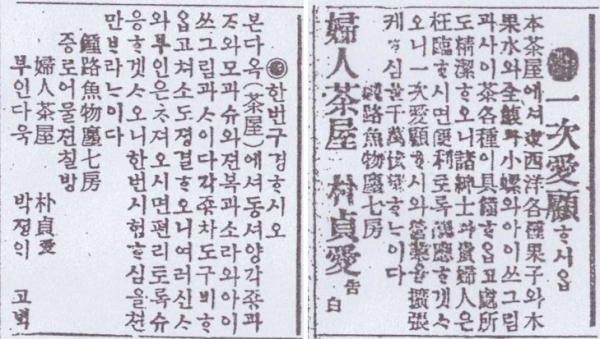 ◉一次愛顧ᄒᆞ시ᄋᆞᆸ
本茶屋에셔東西洋各種果子와木
果水와全鰒과小螺와아이쓰그림
과사이茶各種이具備ᄒᆞᄋᆞᆸ고處所
도精潔ᄒᆞ오니諸紳士과貴婦人은
枉臨ᄒᆞ시면便利토록酬應ᄒᆞ겟ᄉᆞ
오니一次愛顧ᄒᆞ시와營業을擴張
케ᄒᆞ심을千萬伏望ᄒᆞᄂᆞ이다
鍾路魚物廛七房
婦人茶屋 朴貞愛 告白
◉한번구경ᄒᆞ시오
본다옥(茶屋)에셔동셔양각죵과
ᄌᆞ와모과슈와젼복과소라와아이
쓰그림과ᄉᆞ이다각죵차도구비ᄒᆞ
ᄋᆞᆸ고쳐소도졍결ᄒᆞ오니여러신ᄉᆞ
와부인은ᄎᆞᄌᆞ오시면편리토록슈
응ᄒᆞ겟ᄉᆞ오니한번시험ᄒᆞ심을쳔
만ᄇᆞ라ᄂᆞ이다
鍾路魚物廛七房
죵로어물젼칠방
婦人茶屋 朴貞愛
부인다옥 박졍ᄋᆡ 고ᄇᆡᆨ